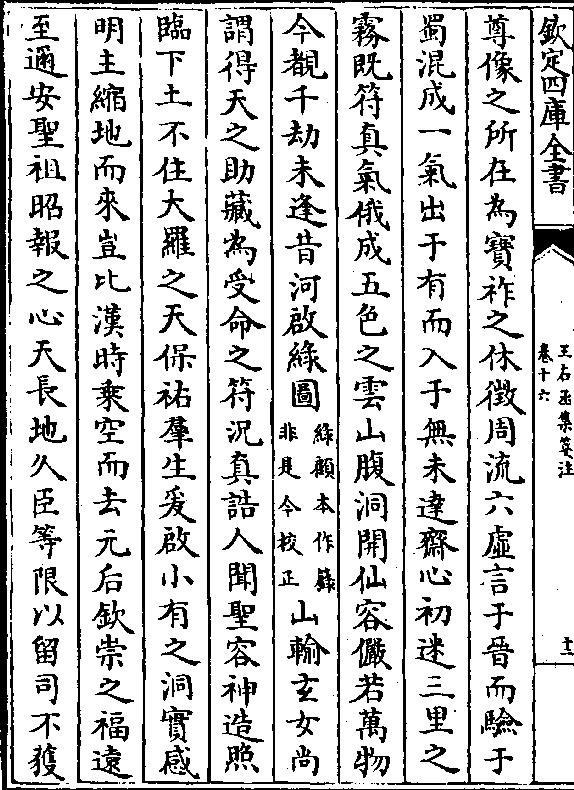 欽定四庫全書
王右丞集箋注
卷十六
十二
尊像之所在為寶祚之休徴周流六虛言于晉而驗于
蜀混成一氣出于有而入于無未違齋心初迷三里之
霧既符真氣俄成五色之雲山腹洞開仙容儼若萬物
今覩千劫未逢昔河啟綠圖綠顧本作籙非是今校正山輸玄女尚
謂得天之助藏為受命之符況真誥人聞聖容神造照
臨下土不住大羅之天保祐羣生爰啟小有之洞實感
明主縮地而來豈比漢時乘空而去元后欽崇之福遠
至邇安聖祖昭報之心天長地久臣等限以留司不獲